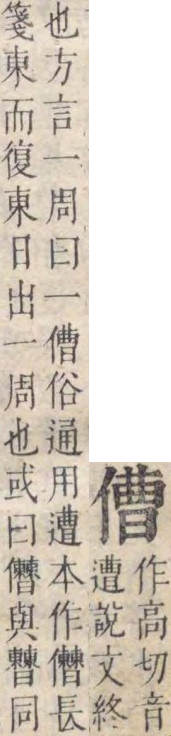 傮
作高切音
遭說文終
也方言一周曰一傮俗通用遭本作長
箋東而復東日出一周也或曰與𣍘同